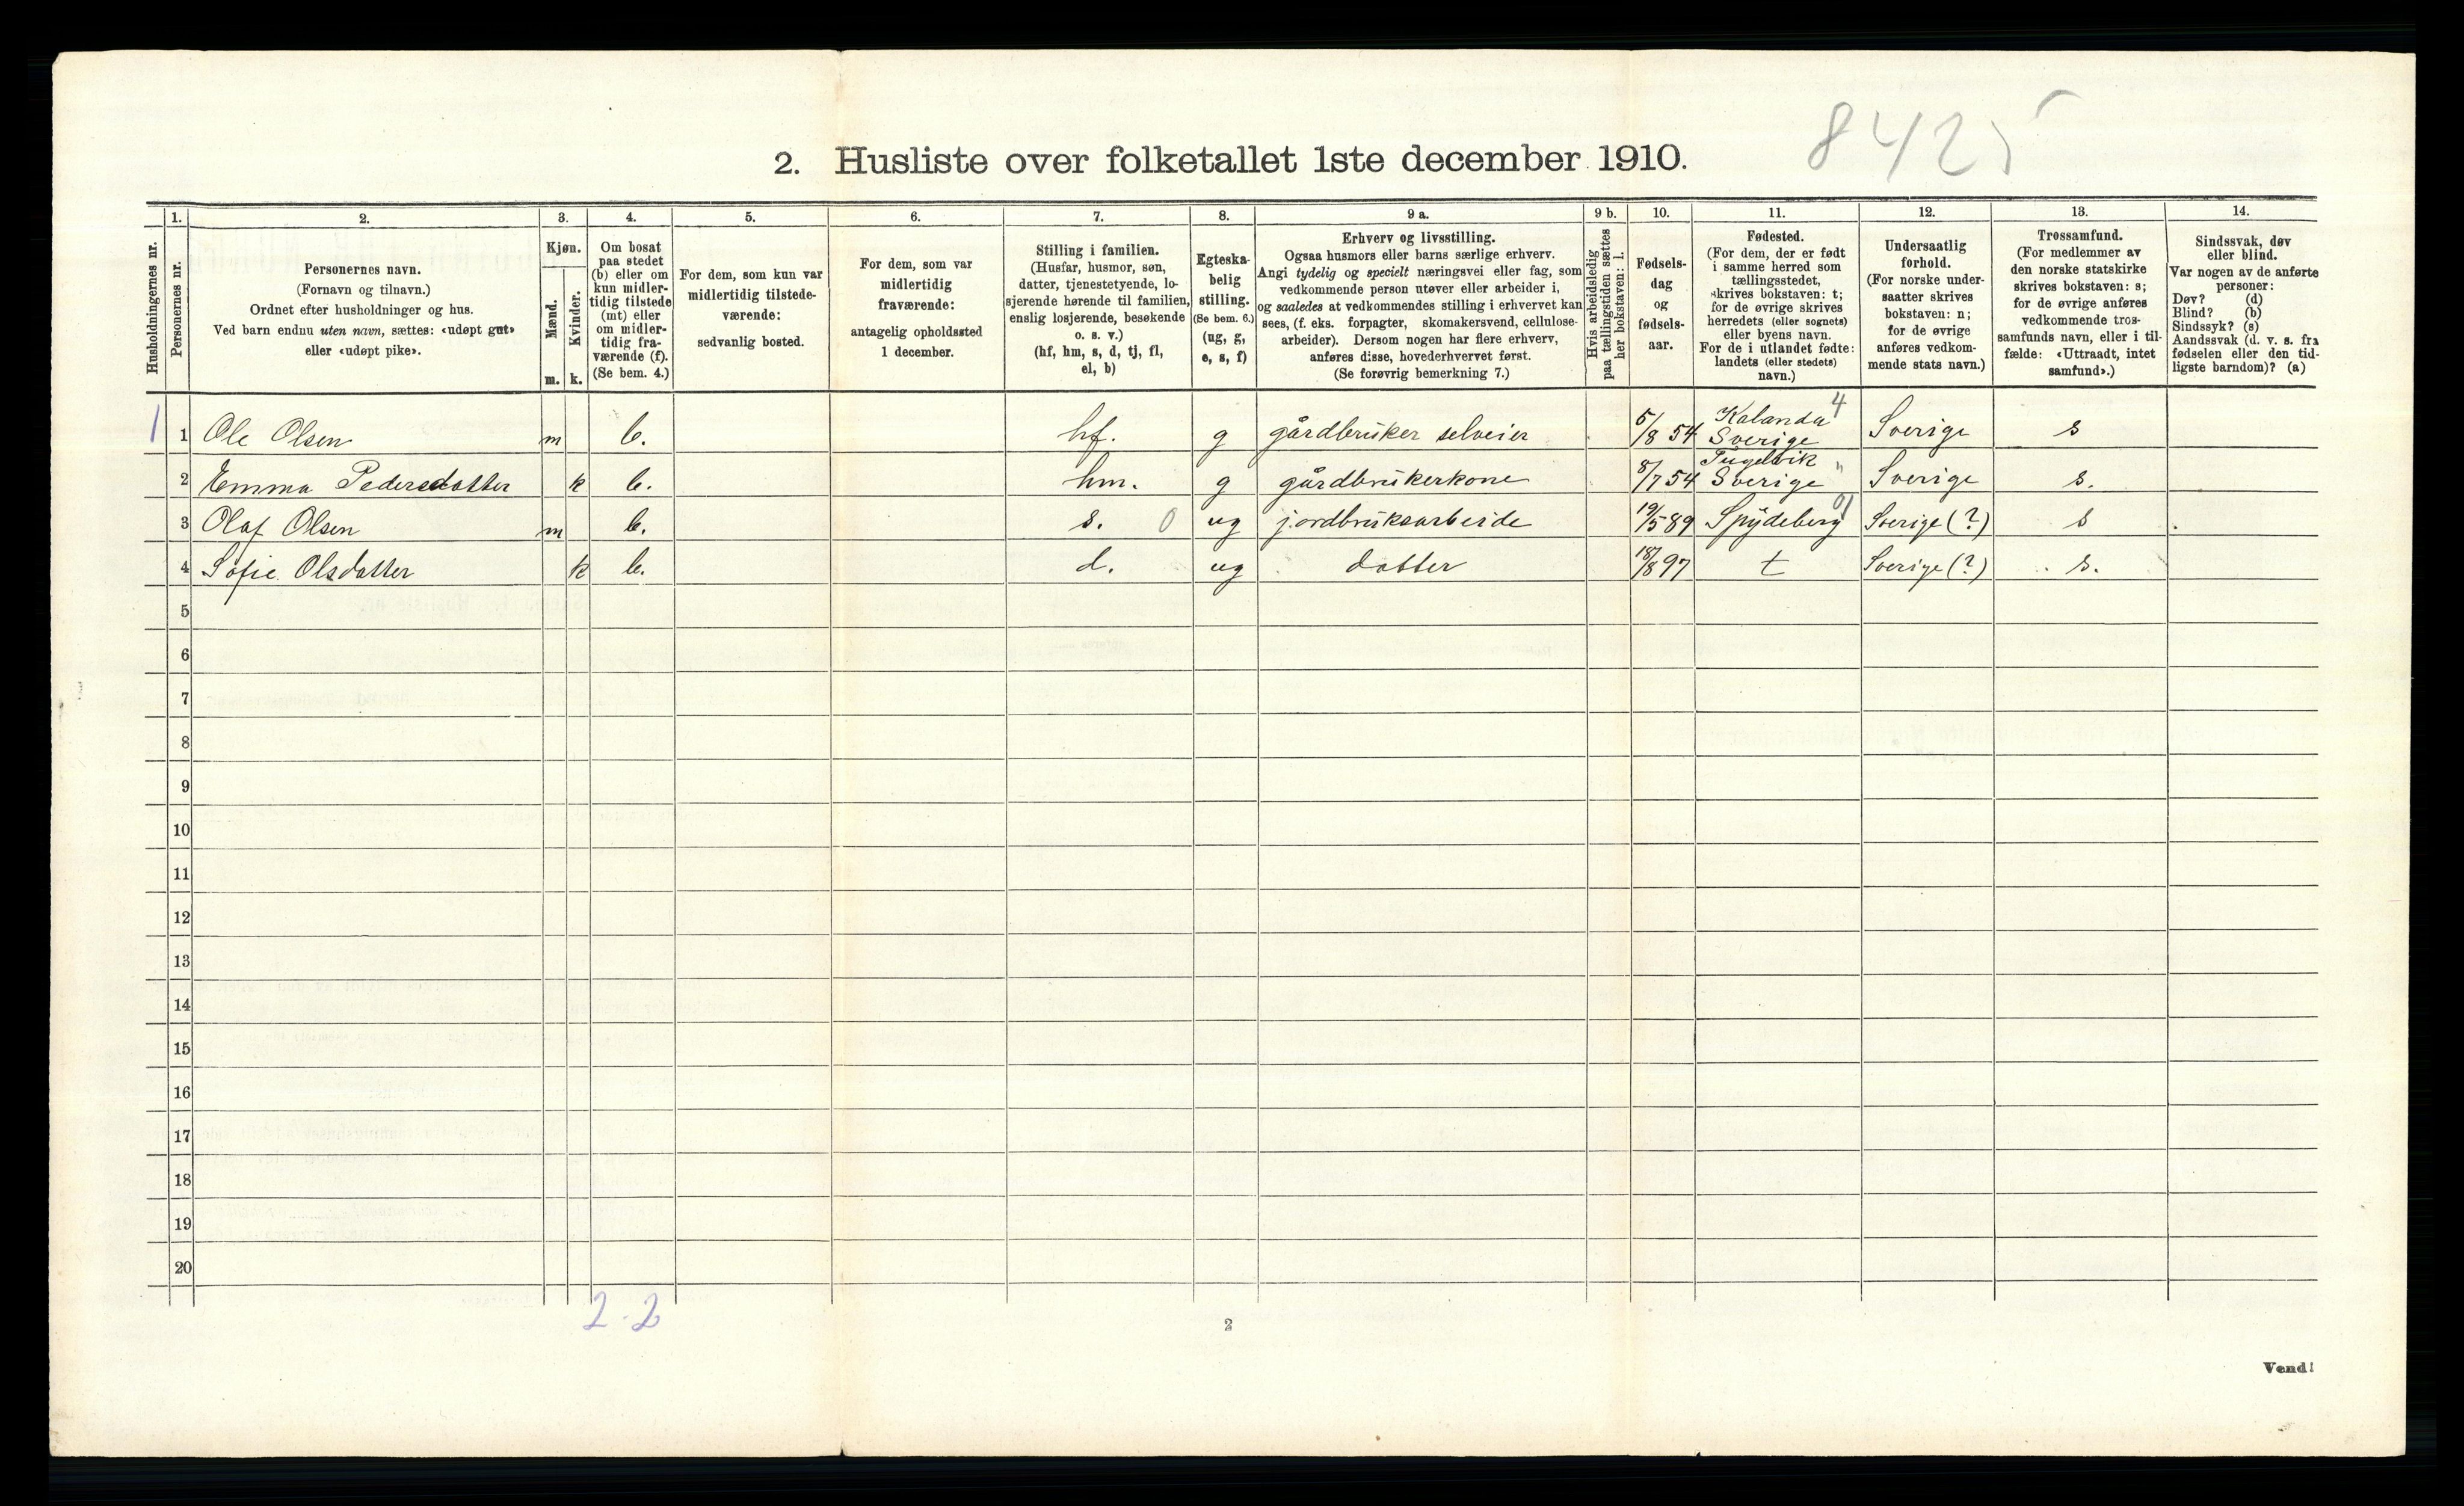 8425
2. Husliste over folketallet 1ste december 1910.
Husholdningernes nr.
1.
Personernes nr.
2.
Personernes navn.
(Fornavn og tilnavn.)
Ordnet efter husholdninger og hus.
Ved barn endnu uten navn, sættes: «udøpt gut»
eller «udøpt pike».
3.
Kjøn.
Mænd.
Kvinder.
m. k.
4.
Om bosat
paa stedet
(b) eller om
kun midler-
tidig tilstede
(mt) eller
om midler-
tidig fra-
værende (f).
(Se bem. 4.)
5.
For dem, som kun var
midlertidig tilstede-
værende:
sedvanlig bosted.
6.
For dem, som var
midlertidig
fraværende:
antagelig opholdssted
1 december.
7.
Stilling i familien.
(Husfar, husmor, søn,
datter, tjenestetyende, lo-
sjerende hørende til familien,
enslig losjerende, besøkende
o. s. v.)
(hf, hm, s, d, tj, fl,
el, b)
8.
Egteska-
belig
stilling.
(Se bem. 6.)
(ug, g,
e, s, f)
9 a.
Erhverv og livsstilling.
Ogsaa husmors eller barns særlige erhverv.
Angi tydelig og specielt næringsvei eller fag, som
vedkommende person utøver eller arbeider i,
og saaledes at vedkommendes stilling i erhvervet kan
sees, (f. eks. forpagter, skomakersvend, cellulose-
arbeider). Dersom nogen har flere erhverv,
anføres disse, hovederhvervet først.
(Se forøvrig bemerkning 7.)
9 b.
Hvis arbeidsledig
paa tællingstiden sættes
her bokstaven: l.
10.
Fødsels-
dag
og
fødsels-
aar.
11.
Fødested.
(For dem, der er født
i samme herred som
tællingsstedet,
skrives bokstaven: t;
for de øvrige skrives
herredets (eller sognets)
eller byens navn.
For de i utlandet fødte:
landets (eller stedets)
navn.)
12.
Undersaatlig
forhold.
(For norske under-
saatter skrives
bokstaven: n;
for de øvrige
anføres vedkom-
mende stats navn.)
13.
Trossamfund.
(For medlemmer av
den norske statskirke
skrives bokstaven: s;
for de øvrige anføres
vedkommende tros-
samfunds navn, eller i til-
fælde: «Uttraadt, intet
samfund».)
14.
Sindssvak, døv
eller blind.
Var nogen av de anførte
personer:
Døv? (d)
Blind? (b)
Sindssyk? (s)
Aandssvak (d. v. s. fra
fødselen eller den tid-
ligste barndom)? (a)
1 1 Ole Olsen m b. hf. g gårdbruker selveier 5/8 54 Kalanda 4 Sverige Sverige s
2 Emma Pedersdatter k b. hm. g gårdbrukerkone 8/7 54 Sverige " Sverige s.
3 Olaf Olsen m b. s. 0 ug jordbruksarbeide 19/5 89 Spydeberg 01 Sverige (?) s
4 Sofie Olsdatter k b. d. ug datter 18/8 97 t Sverige (?) s.
5
6
7
8
9
10
11
12
13
14
15
16
17
18
19
20
2 . 2
2
Vend!